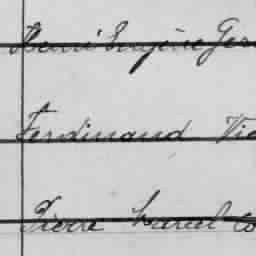 Henri Eugène Ger
Ferdinand Vic
Pierre Marcel Co